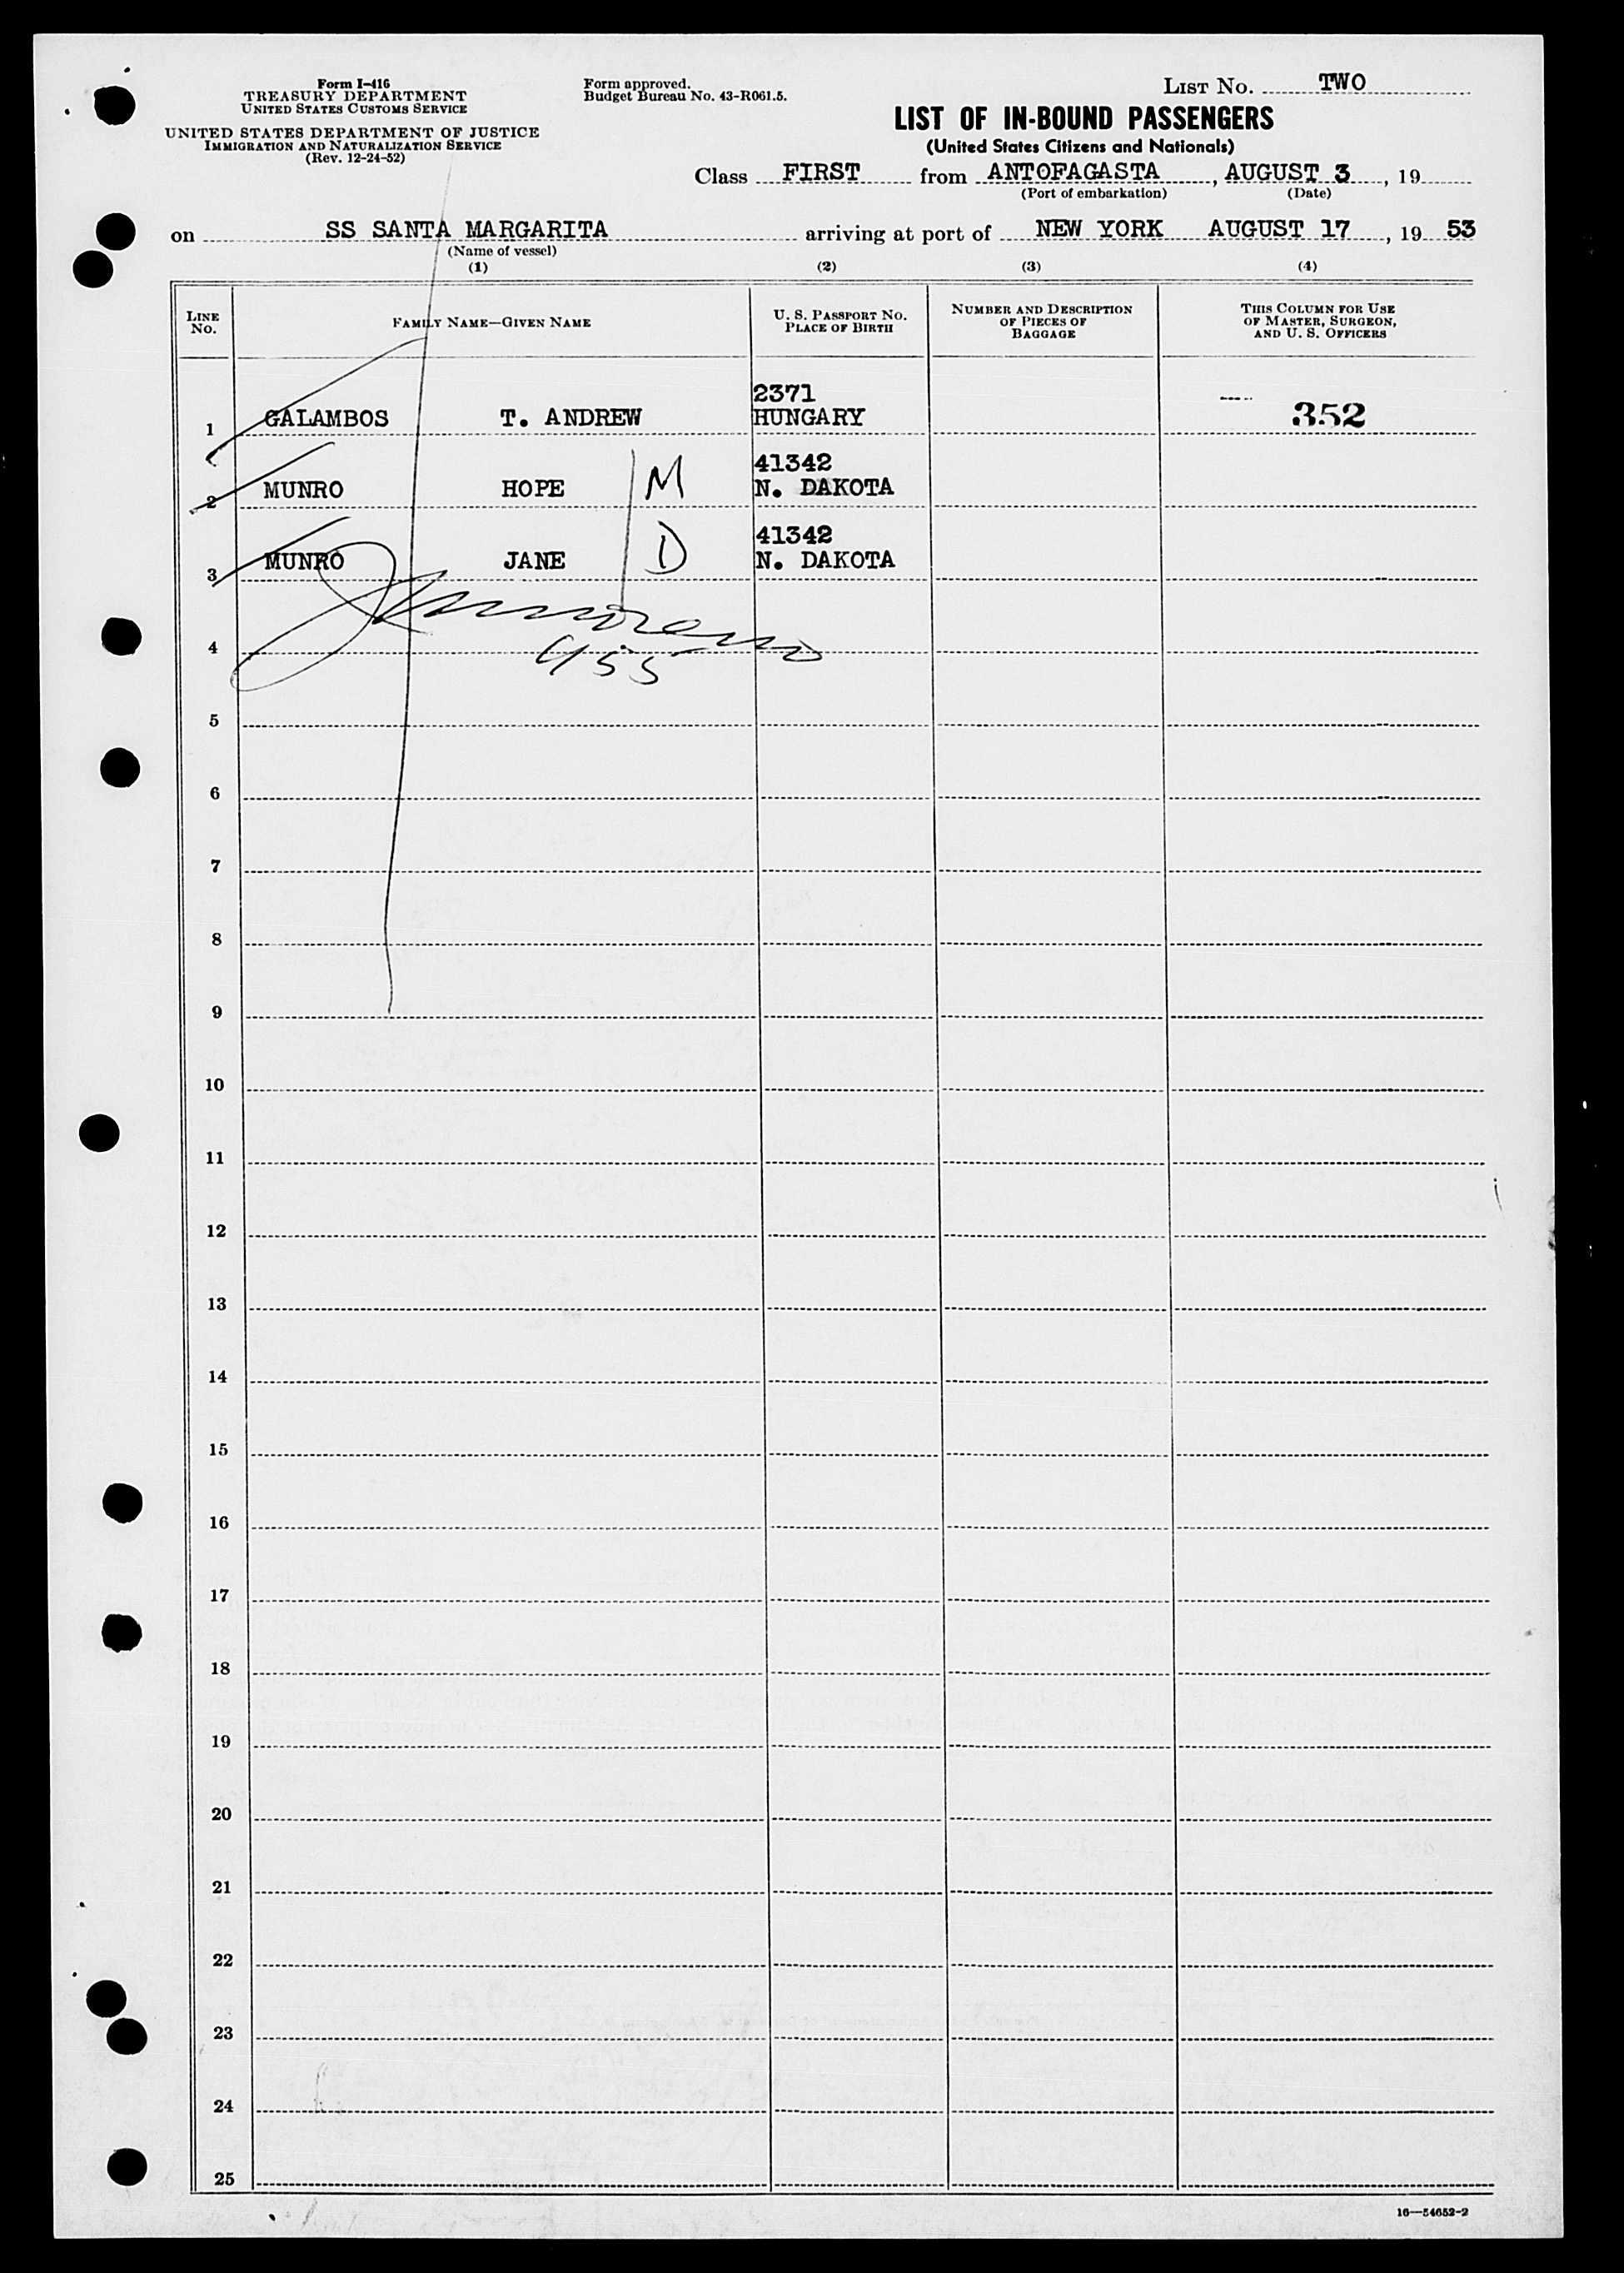 Form I-416
TREASURY DEPARTMENT
UNITED STATES CUSTOMS SERVICE
UNITED STATES DEPARTMENT OF JUSTICE
IMMIGRATION AND NATURALIZATION SERVICE
(Rev. 12-24-52)
Form approved.
Budget Bureau No. 43-R061.5.
LIST No. TWO
LIST OF IN-BOUND PASSENGERS
(United States Citizens and Nationals)
Class FIRST from ANTOFAGASTA, AUGUST 3, 19
(Port of embarkation) (Date)
on SS SANTA MARGARITA arriving at port of NEW YORK AUGUST 17, 19 53
(Name of vessel)
(1) (2) (3) (4)
LINE No. FAMILY NAME—GIVEN NAME U. S. PASSPORT No. PLACE OF BIRTH NUMBER AND DESCRIPTION OF PIECES OF BAGGAGE THIS COLUMN FOR USE OF MASTER, SURGEON, AND U. S. OFFICERS
2371
1 GALAMBOS T. ANDREW HUNGARY 352
41342
2 MUNRO HOPE M N. DAKOTA
41342
3 MUNRO JANE D N. DAKOTA
4
955
5
6
7
8
9
10
11
12
13
14
15
16
17
18
19
20
21
22
23
24
25
16—54652-2